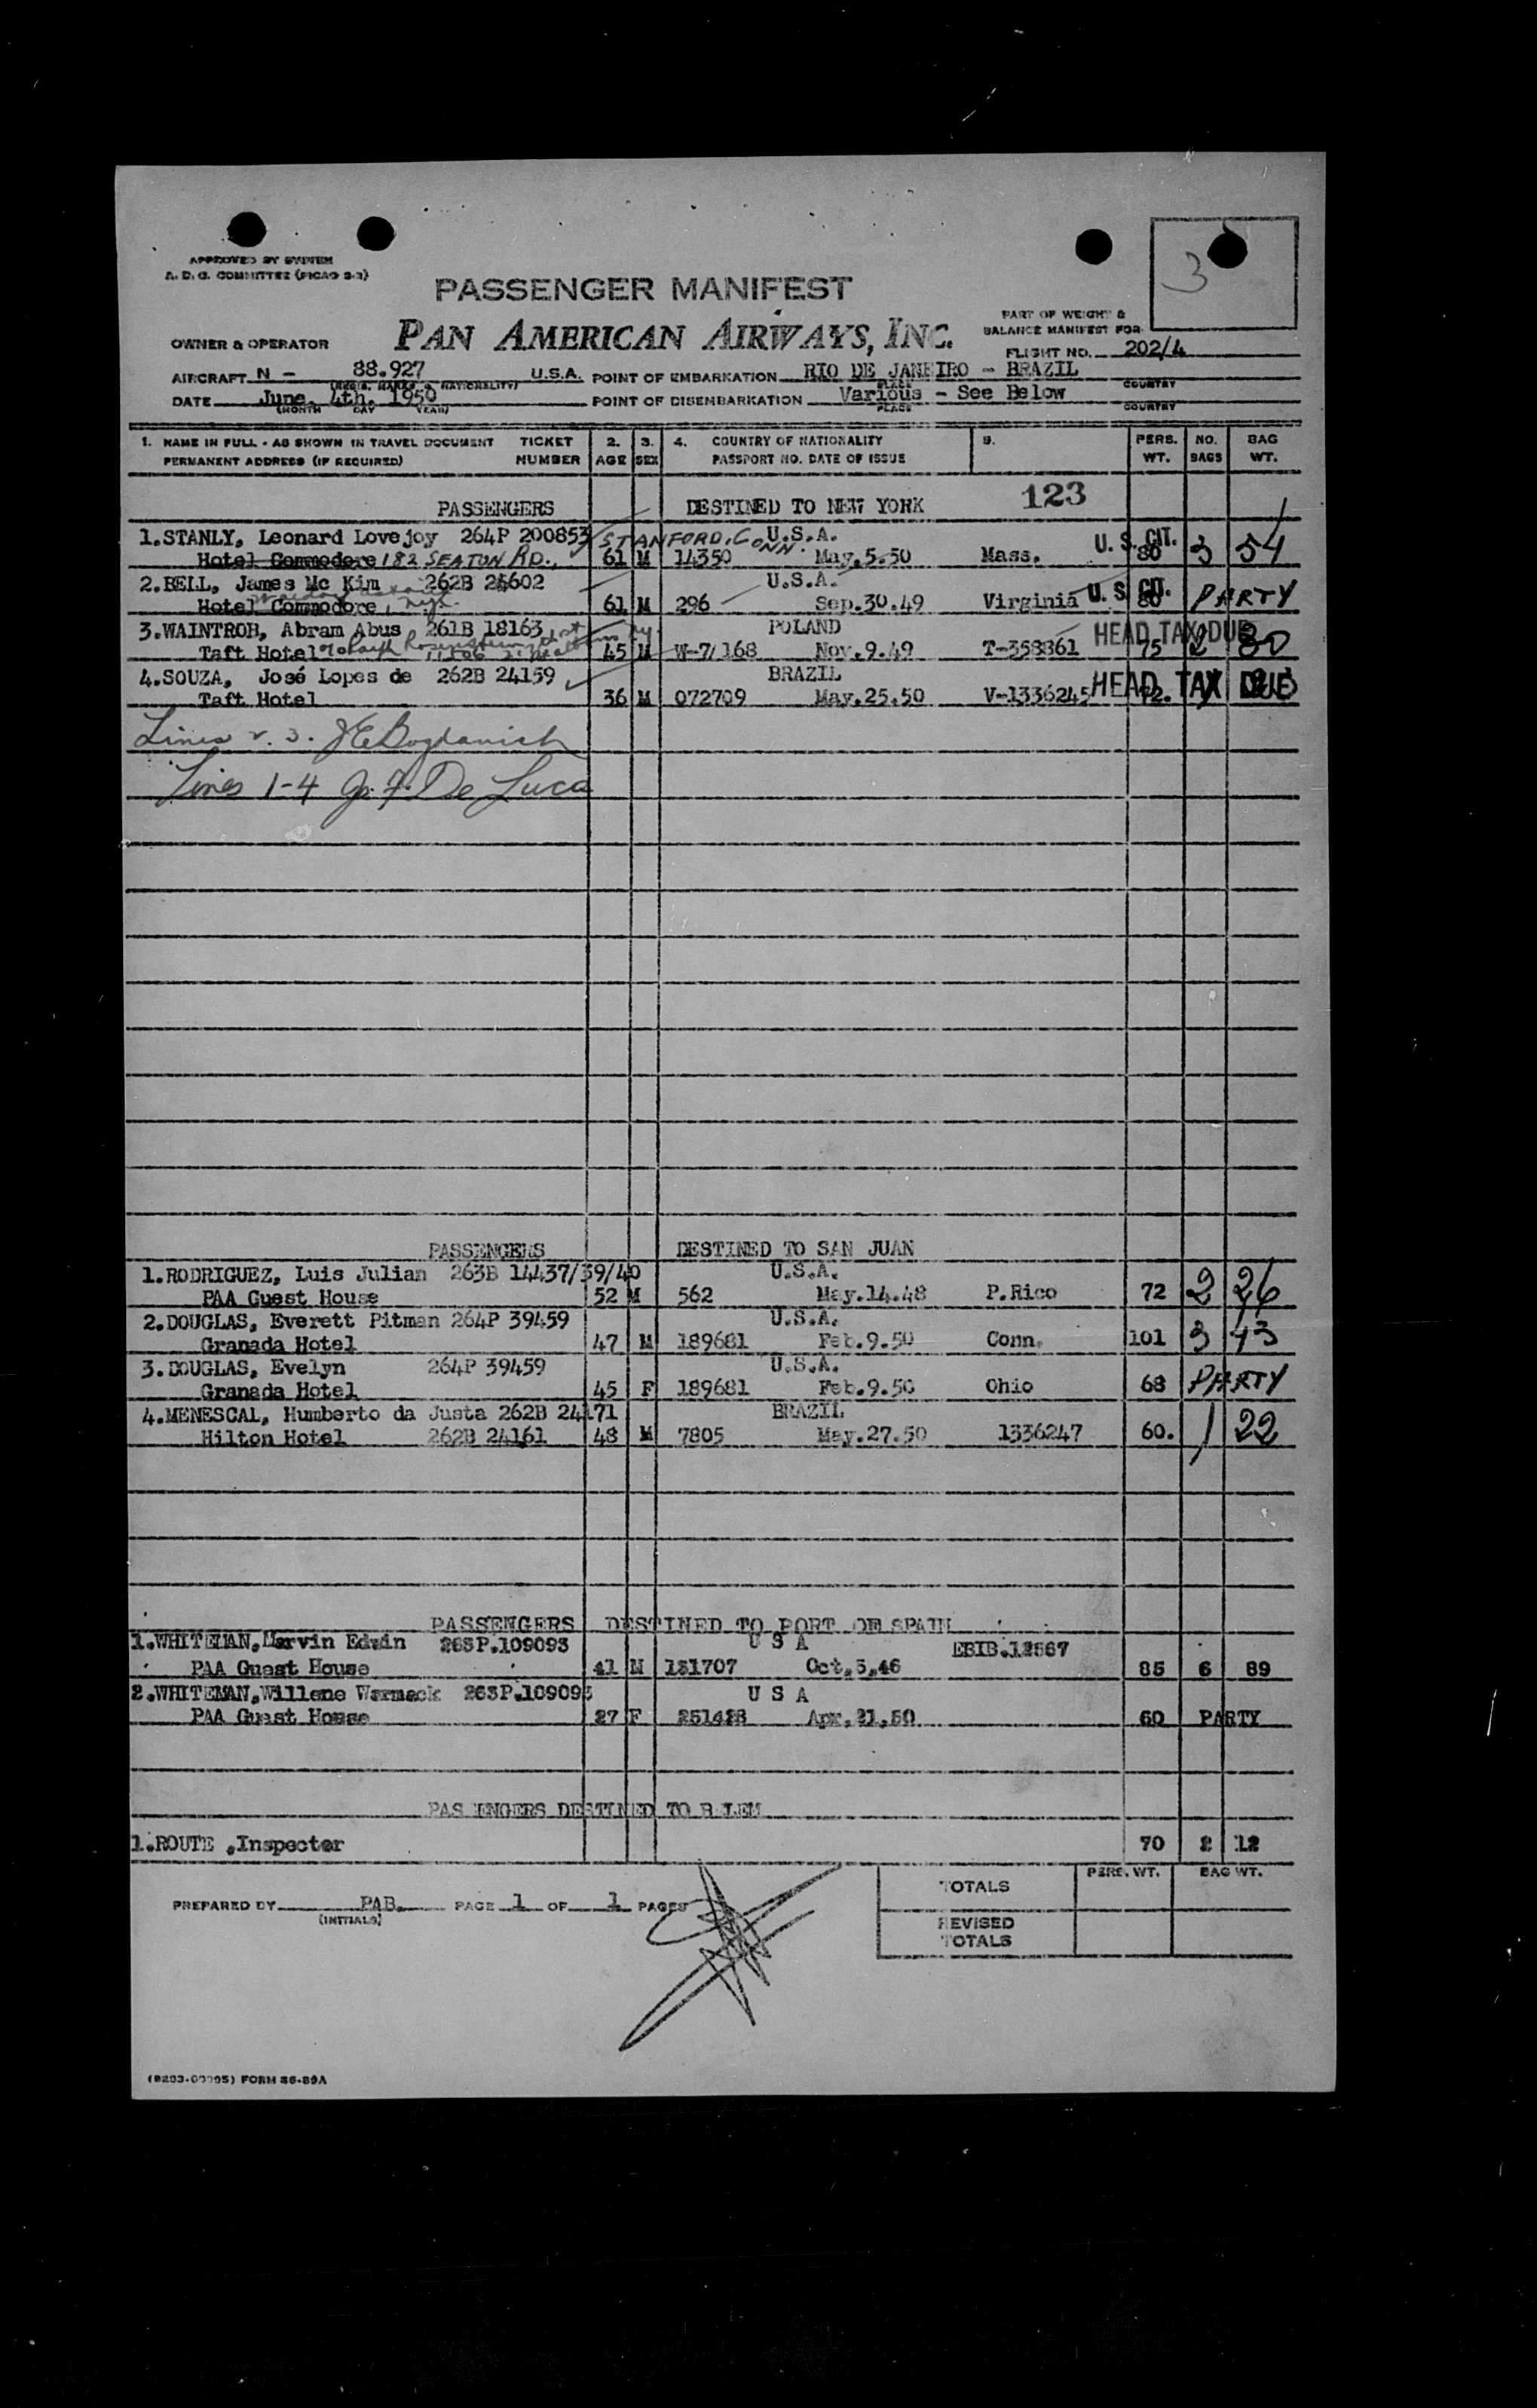 3
APPROVED BY SYSTEM
A. D. C. COMMITTEE (PICAO 2-3)
PASSENGER MANIFEST
PART OF WEIGHT &
BALANCE MANIFEST FOR
OWNER & OPERATOR PAN AMERICAN AIRWAYS, INC.
FLIGHT NO. 202/4
AIRCRAFT N - 88.927 U.S.A. POINT OF EMBARKATION RIO DE JANEIRO - BRAZIL
(REG'N. MARKS & NATIONALITY) PLACE COUNTRY
DATE June. 4th. 1950 POINT OF DISEMBARKATION Various - See Below
(MONTH DAY YEAR) PLACE COUNTRY
1. NAME IN FULL - AS SHOWN IN TRAVEL DOCUMENT TICKET 2. 3. 4. COUNTRY OF NATIONALITY 5. PERS. NO. BAG
PERMANENT ADDRESS (IF REQUIRED) NUMBER AGE SEX PASSPORT NO. DATE OF ISSUE WT. BAGS WT.
PASSENGERS DESTINED TO NEW YORK 123
1.STANLY, Leonard Lovejoy 264P 200853 STANFORD, CONN. U.S.A. U. S. CIT.
Hotel Commodore 182 SEATON RD., 61 M 14350 May.5.50 Mass. 80 3 54
2.BELL, James Mc Kim 262B 24602 U.S.A. U. S. CIT.
Hotel Commodore, 61 M 296 Sep.30.49 Virginia 80 PARTY
3.WAINTROB, Abram Abus 261B 18163 POLAND HEAD TAX DUE
Taft Hotel 45 M W-7/168 Nov.9.49 T-358861 75 2 30
4.SOUZA, José Lopes de 262B 24159 BRAZIL HEAD TAX DUE
Taft Hotel 36 M 072709 May.25.50 V-1336245 72.
Lines 1-4 De Luca
PASSENGERS DESTINED TO SAN JUAN
1.RODRIGUEZ, Luis Julian 263B 14437/39/40 U.S.A.
PAA Guest House 52 M 562 May.14.48 P.Rico 72 2 26
2.DOUGLAS, Everett Pitman 264P 39459 U.S.A.
Granada Hotel 47 M 189681 Feb.9.50 Conn. 101 3 43
3.DOUGLAS, Evelyn 264P 39459 U.S.A.
Granada Hotel 45 F 189681 Feb.9.50 Ohio 68 PARTY
4.MENESCAL, Humberto da Justa 262B 24171 BRAZIL
Hilton Hotel 262B 24161 48 M 7805 May.27.50 1336247 60. 1 22
PASSENGERS DESTINED TO PORT OF SPAIN
1.WHITEMAN,Marvin Edwin 263P.109093 U S A EBIB.12567
PAA Guest House 41 M 131707 Oct.3.46 85 6 89
2.WHITEMAN,Willene Warmack 263P.109093 U S A
PAA Guest House 27 F 251428 Apr.21.50 60 PARTY
PAS ENGERS DESTINED TO B LEM
1.ROUTE ,Inspector 70 2 12
PERS. WT. BAG WT.
TOTALS
PREPARED BY PAB. PAGE 1 OF 1 PAGES
(INITIALS)
REVISED
TOTALS
(8203-00005) FORM 36-89A